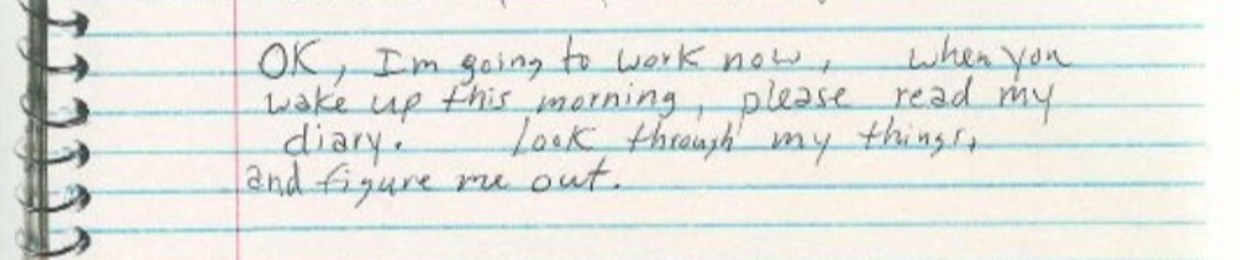 OK, Im going to work now, when you
wake up this morning, please read my
diary. look through my things,
and figure me out.